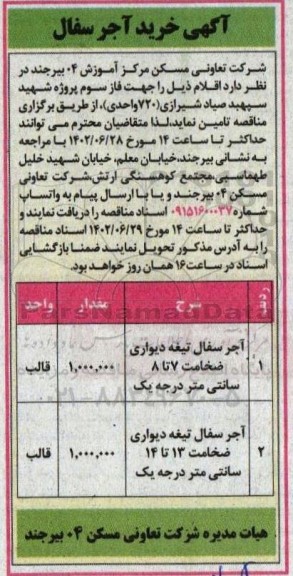 آگهی خرید آجر سفال
شرکت تعاونی مسکن مرکز آموزش ۰۴ بیرجند در
نظر دارد اقلام ذیل را جهت فاز سوم پروژه شهید
سپهبد صیاد شیرازی(۷۲۰واحدی)،از طریق برگزاری
مناقصه تامین نماید،لذا متقاضیان محترم می توانند
حداکثر تا ساعت ۱۴ مورخ ۱۴۰۲/۰۶/۲۸ با مراجعه
به نشانی بیرجند،خیابان معلم، خیابان شهید خلیل
طهماسبی،مجتمع کوهسنگی ارتش،شرکت تعاونی
مسکن ۰۴ بیرجند و یا با ارسال پیام به واتساپ
شماره۰۹۱۵۱۶۰۰۰۳۷ اسناد مناقصه را دریافت نمایند و
حداکثر تا ساعت ۱۴ مورخ ۱۴۰۲/۰۶/۲۹ اسناد مناقصه
را به آدرس مذکور تحویل نمایند ضمنا بازگشایی
اسناد در ساعت۱۶ همان روز خواهد بود.
ردیف شرح مقدار واحد
۱ آجر سفال تیغه دیواری ضخامت ۷تا ۸ سانتی متر درجه یک ۱,۰۰۰,۰۰۰ قالب
۲ آجر سفال تیغه دیواری ضخامت ۱۳ تا ۱۴ سانتی متر درجه یک ۱,۰۰۰,۰۰۰ قالب
هیات مدیره شرکت تعاونی مسکن ۰۴ بیرجند